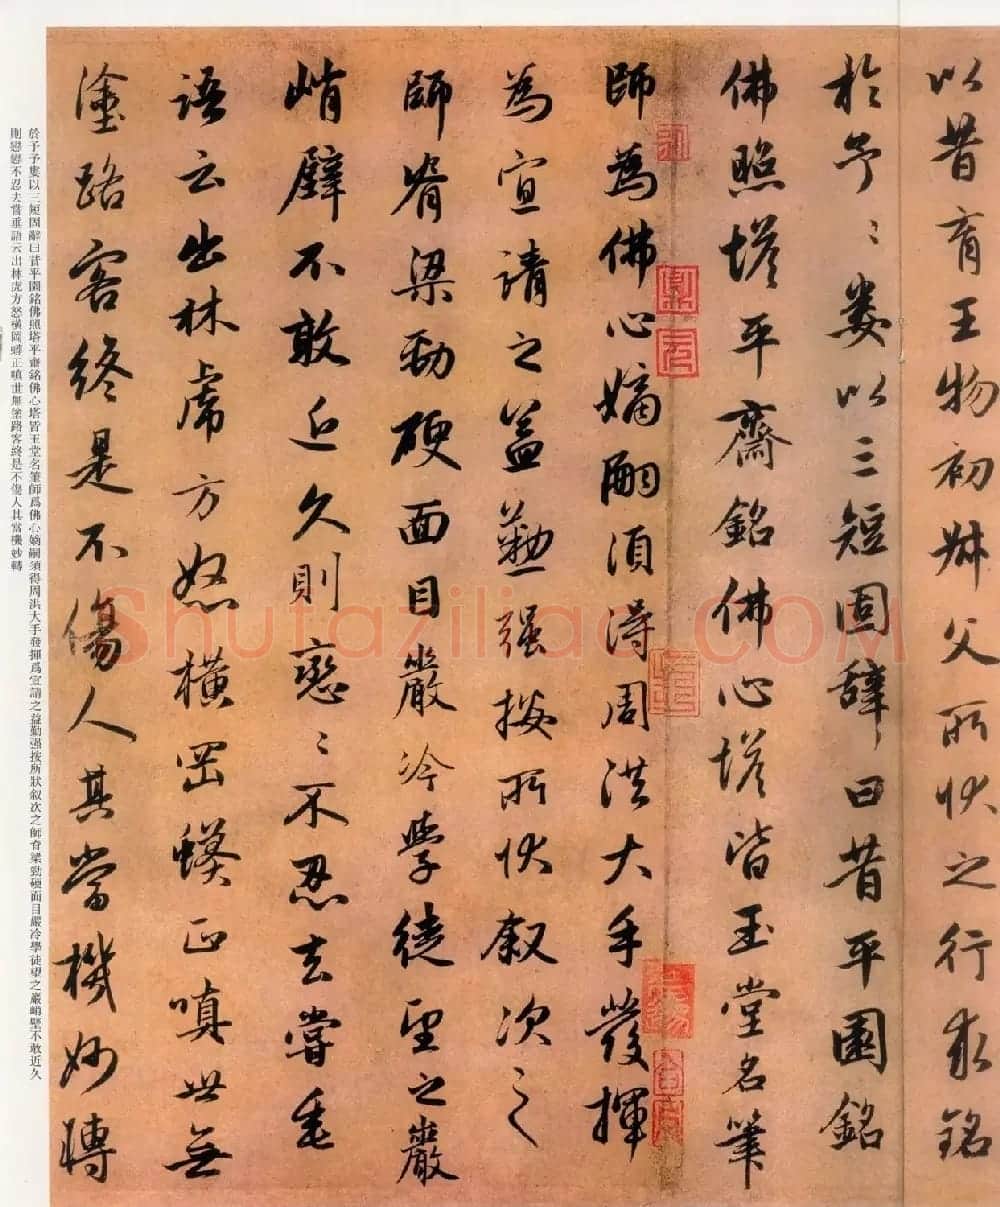 以昔育王物初叔父所状之行求銘
於予予娄以三短固辞曰昔平園銘
佛照塔平齋銘佛心塔皆玉堂名筆
師為佛心嫡嗣須得周洪大手發揮
為宣請之益勤强按所状叙次之
師脊梁勁硬面目嚴冷學徒望之巖
峭壁不敢近久則戀戀不忍去嘗垂
語云出林虎方怒横岡蟒正嗔世無
塗路客終是不傷人其當機妙轉
於予予婁以三短固辭曰昔平園銘佛照塔平齋銘佛心塔皆玉堂名筆師爲佛心嫡嗣須得周洪大手發揮爲宣請之益勤强按所狀叙次之師脊梁勁硬面目嚴冷學徒望之巖峭壁不敢近久
則戀戀不忍去嘗垂語云出林虎方怒横岡蟒正嗔世無塗路客終是不傷人其當機妙轉
Shufaziliao.COM